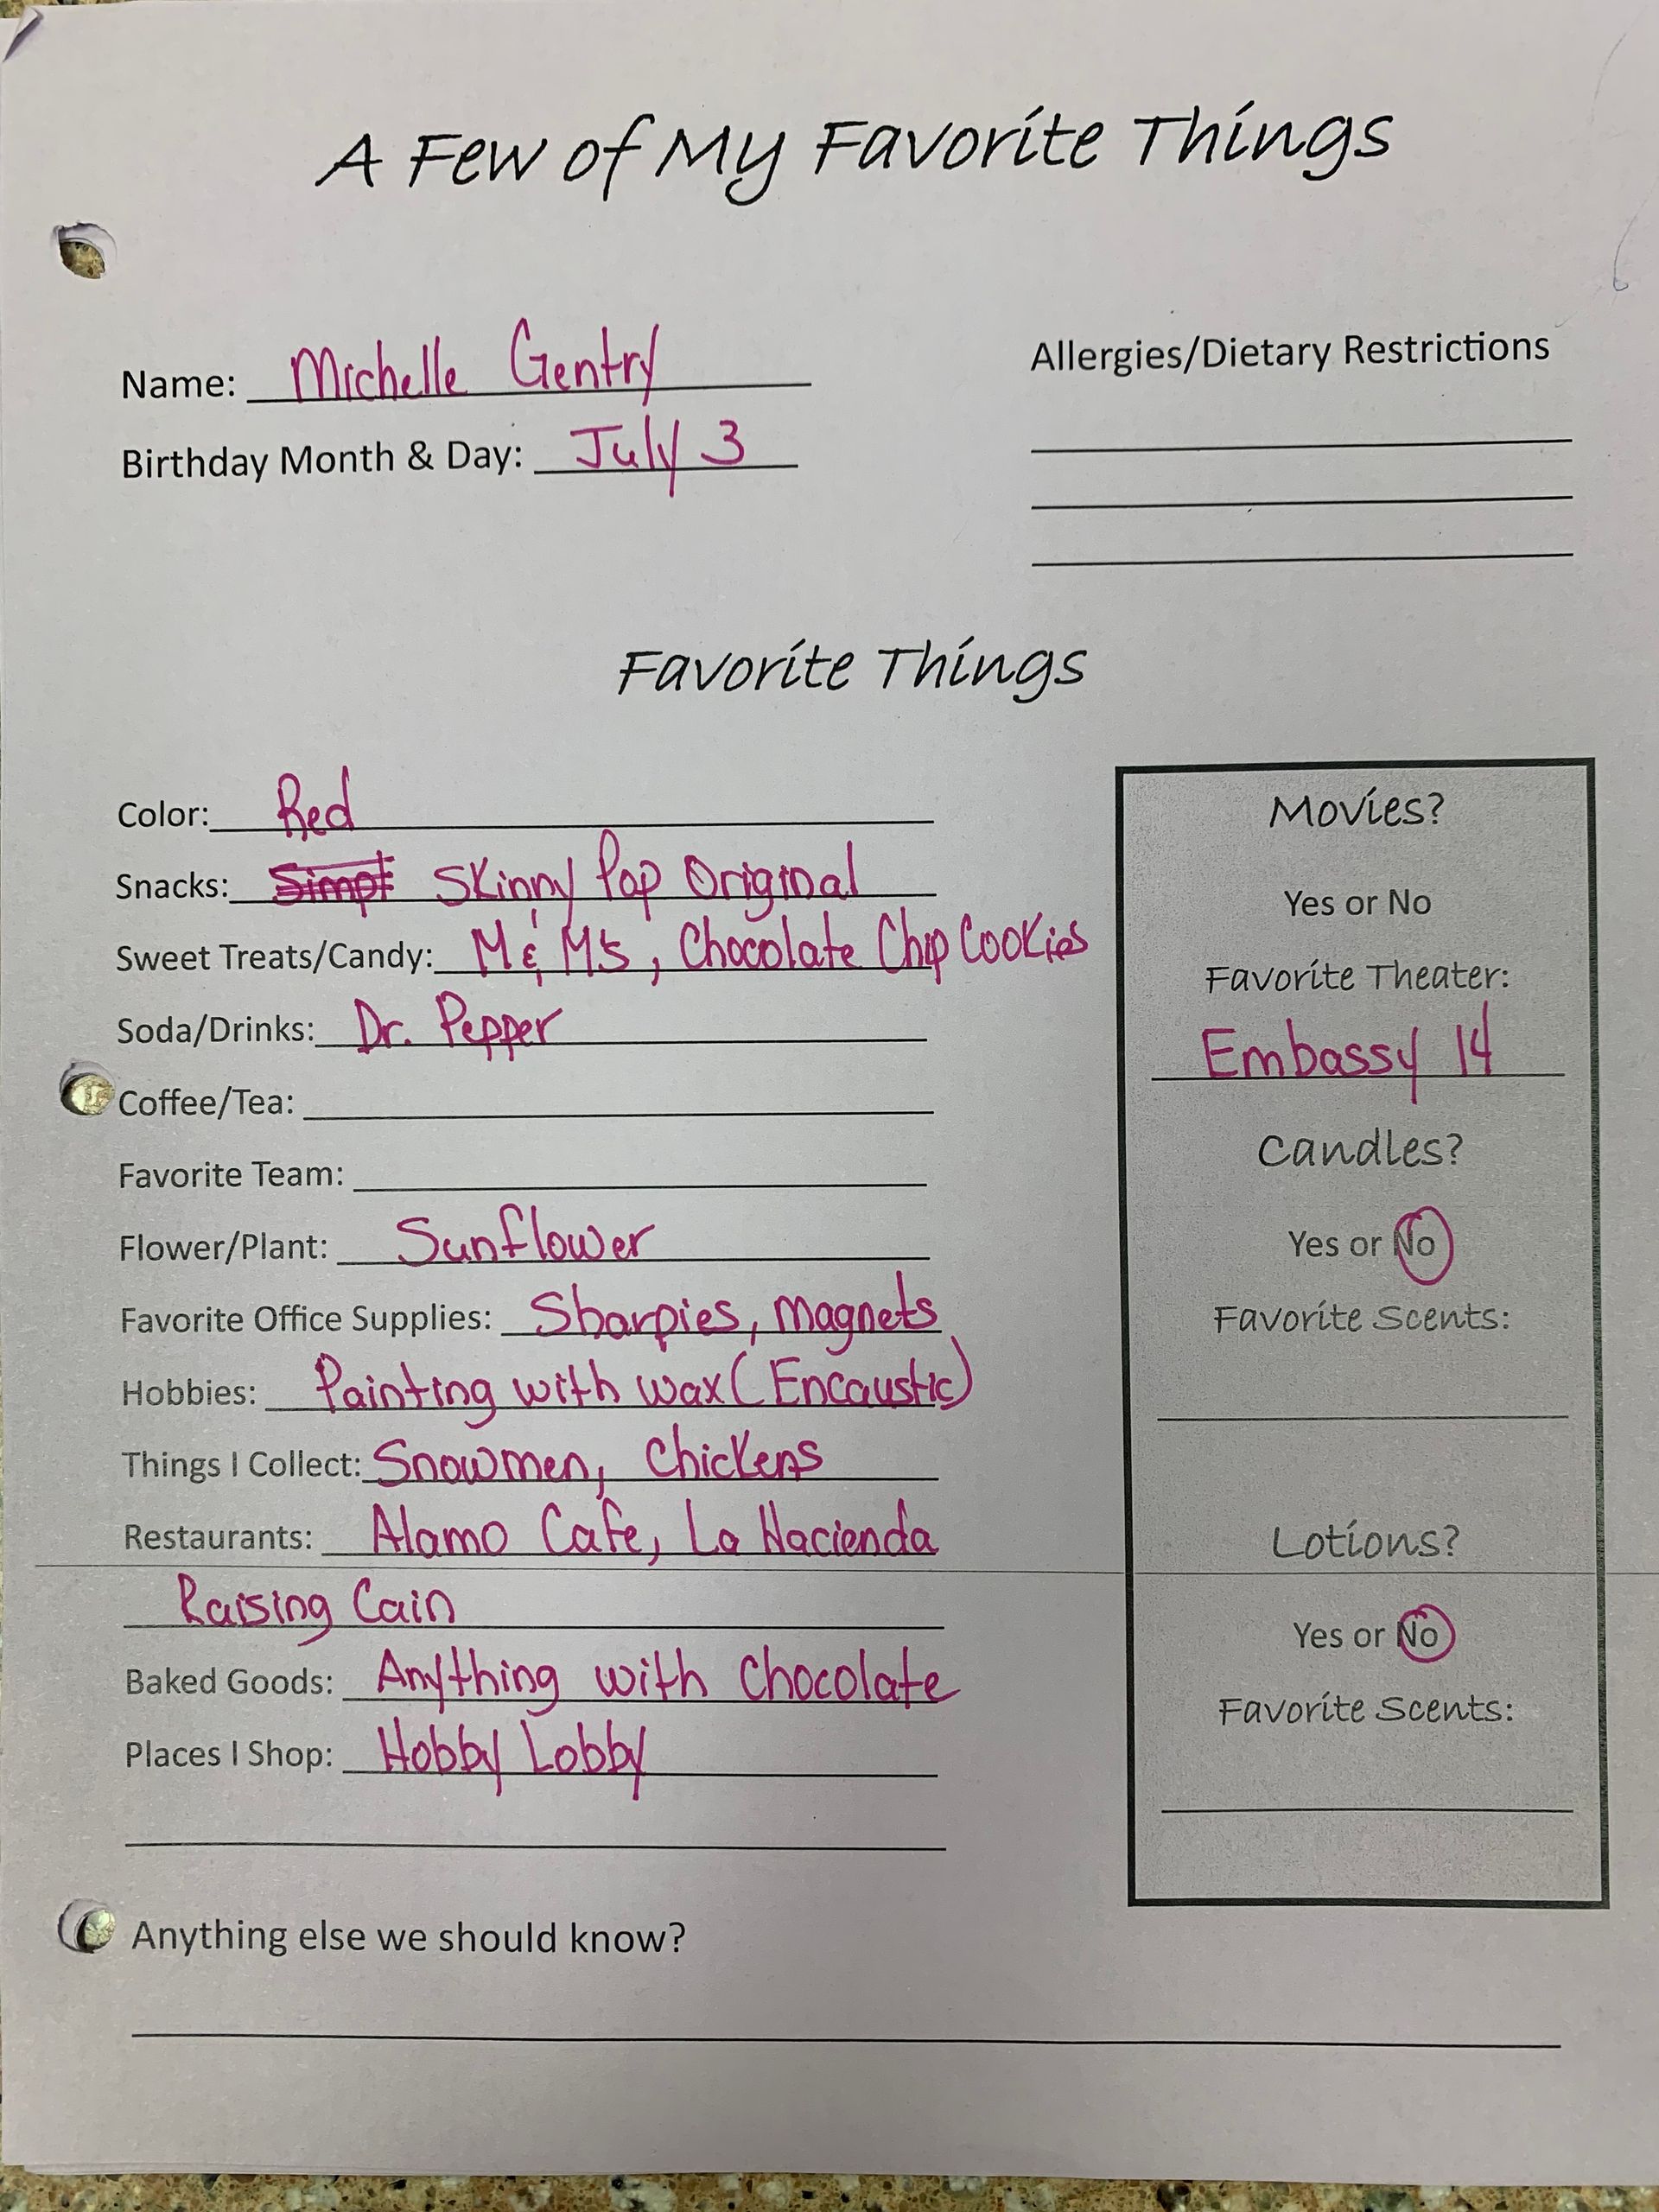 A Few of My Favorite Things
Name: Michelle Gentry
Birthday Month & Day: July 3
Allergies/Dietary Restrictions
Favorite Things
Color: Red
Snacks: Simpl Skinny Pop Original
Sweet Treats/Candy: M & M's, Chocolate Chip Cookies
Soda/Drinks: Dr. Pepper
Coffee/Tea:
Favorite Team:
Flower/Plant: Sunflower
Favorite Office Supplies: Sharpies, magnets
Hobbies: Painting with wax (Encaustic)
Things I Collect: Snowmen, Chickens
Restaurants: Alamo Cafe, La Hacienda
Raising Cain
Baked Goods: Anything with Chocolate
Places I Shop: Hobby Lobby
Movies?
Yes or No
Favorite Theater:
Embassy 14
Candles?
Yes or No
Favorite Scents:
Lotions?
Yes or No
Favorite Scents:
Anything else we should know?